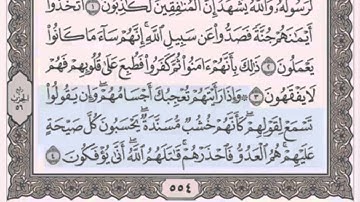 لَرَسُولُهُۥ وَٱللَّهُ يَشْهَدُ إِنَّ ٱلْمُنَٰفِقِينَ لَكَٰذِبُونَ ١ ٱتَّخَذُوٓا۟
أَيْمَٰنَهُمْ جُنَّةً فَصَدُّوا۟ عَن سَبِيلِ ٱللَّهِ ۚ إِنَّهُمْ سَآءَ مَا كَانُوا۟
يَعْمَلُونَ ٢ ذَٰلِكَ بِأَنَّهُمْ ءَامَنُوا۟ ثُمَّ كَفَرُوا۟ فَطُبِعَ عَلَىٰ قُلُوبِهِمْ فَهُمْ
لَا يَفْقَهُونَ ٣ ۞ وَإِذَا رَأَيْتَهُمْ تُعْجِبُكَ أَجْسَامُهُمْ ۖ وَإِن يَقُولُوا۟
تَسْمَعْ لِقَوْلِهِمْ ۖ كَأَنَّهُمْ خُشُبٌ مُّسَنَّدَةٌ ۖ يَحْسَبُونَ كُلَّ صَيْحَةٍ
عَلَيْهِمْ ۚ هُمُ ٱلْعَدُوُّ فَٱحْذَرْهُمْ ۚ قَٰتَلَهُمُ ٱللَّهُ ۖ أَنَّىٰ يُؤْفَكُونَ ٤
٥٥٤